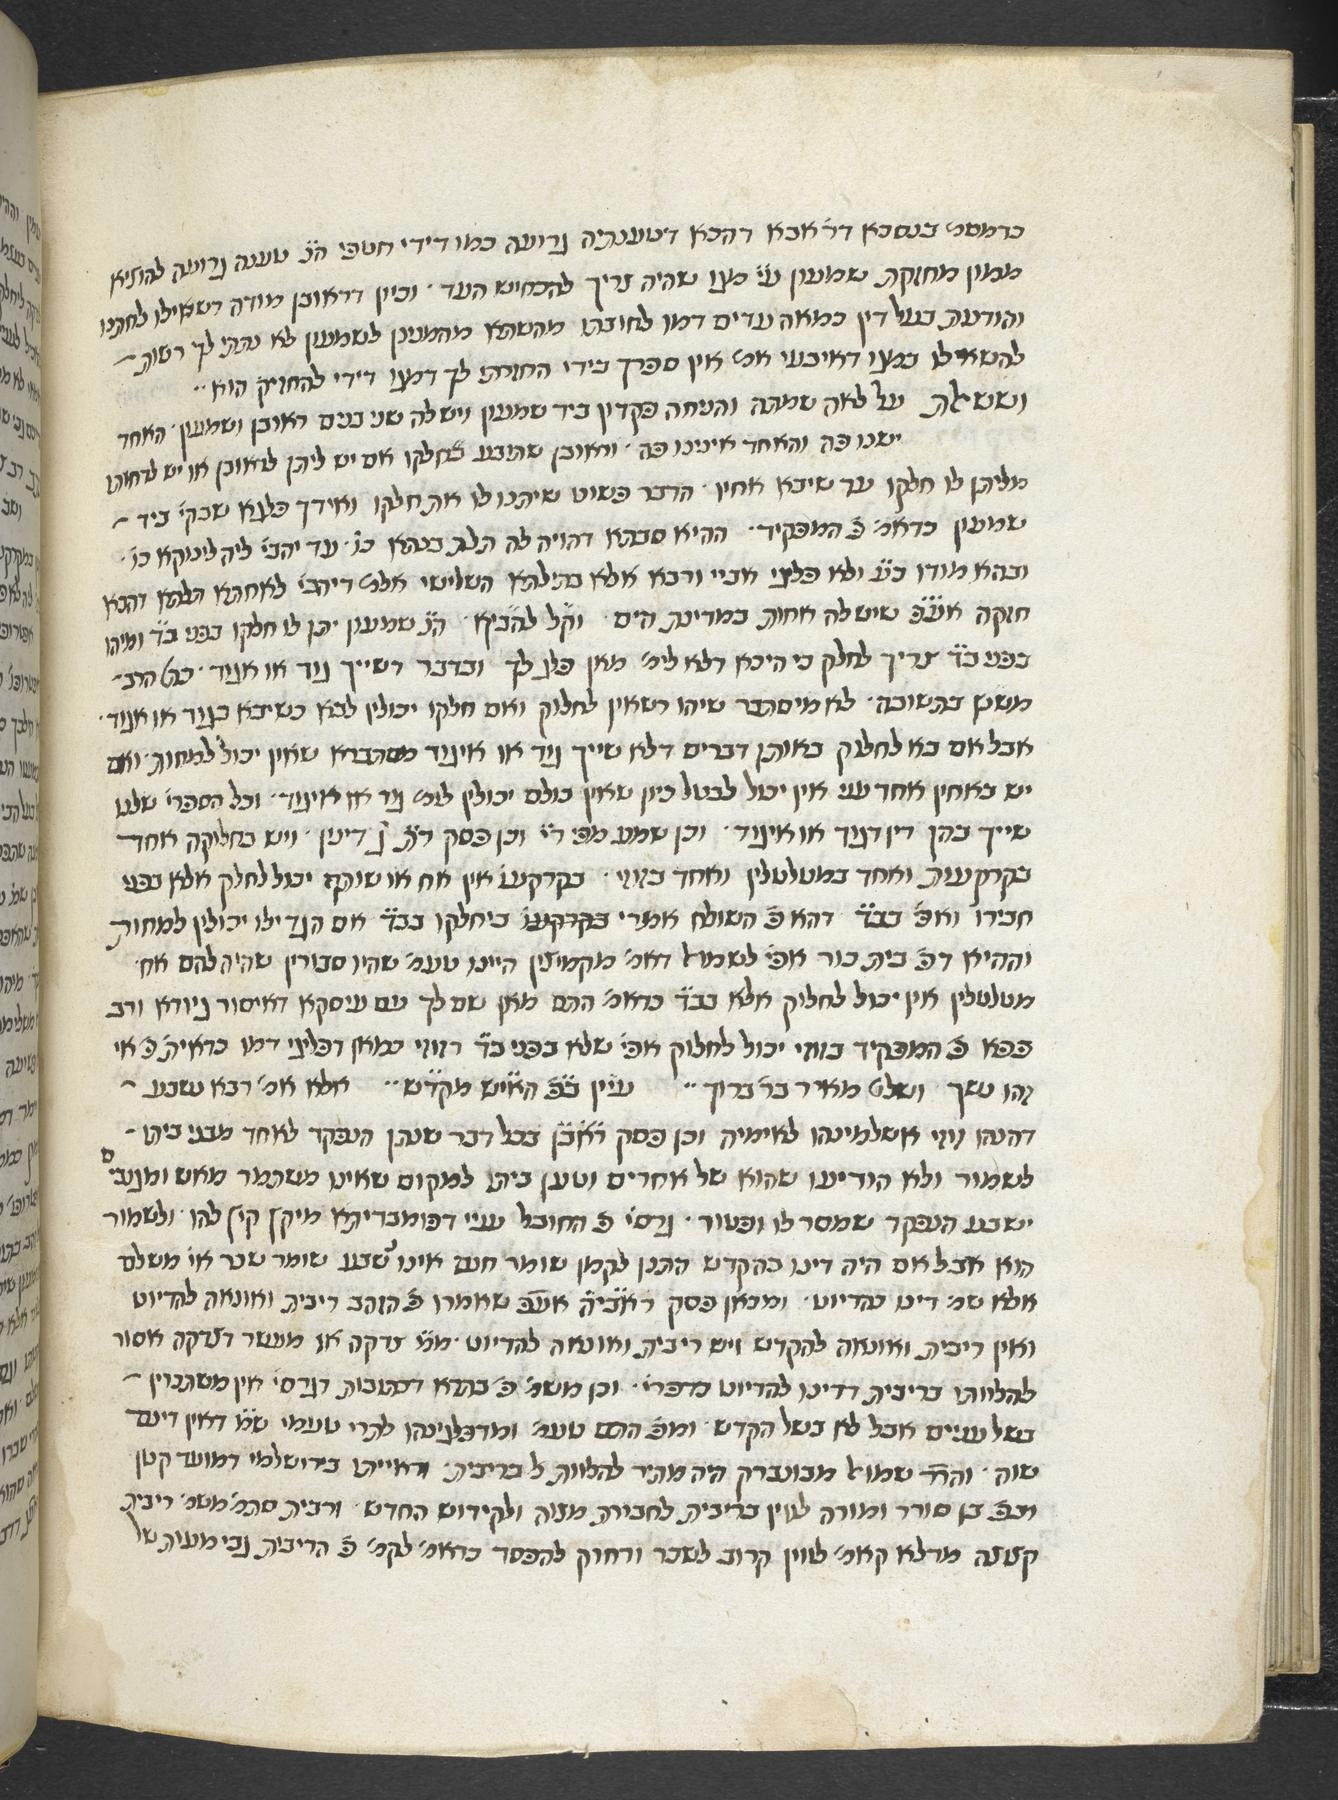 כדמסי' בנסכא דר' אבא דהכא דטענתיה גרועה כמו דידי חטפי ה"נ טענה גרועה להוציא
ממון מחזקת שמעון ע"י כעו שהיה צריך להכחיש העד ׳ וכיון דראובן מודה דשאילו לחתנו
והודעת בעל דין כמאה עדים דמו לחובתו מהשתא מהמנינן לשמעון לא נתתי לך רשות
להשאילו כמו דאיבעי אמ' אין ספרך בידי החזרתי לך דמעו דידי להחזיק הוא ׳׳
וששאלת על לאה שמתה והניחה פקדון ביד שמעון ויש לה שני בנים ראובן ושמעון ׳ האחד
ישנו פה והאחד איננו פה ׳ וראובן שתובע חלקו אם יש ליתן לראובן או יש לדחותו
מליתן לו חלקו עד שיבא אחיו ׳ הדבר פשוט שיתנו לו את חלקו ואידך פלגא שבק' ביד
שמעון כדאמ' פ' המפקיד ׳ ההיא סבתא דהויה לה תלת בנתא כו' ׳ עד יהבי' ליה לינוקא כו' ׳
ובהא מודו כ"ע ולא פליגי אביי ורבא אלא בתילתא השלישי אמ' דיהבי' לאחתא תלתא דהכא
חזקה אע"פ שיש לה אחות במדינת הים ׳ וק"ל להביא ׳ ה"נ שמעון יתן לו חלקו בפני ב"ד ומיהו
בפני ב"ד צריך לחלק כי היכא דלא לימ' מאן פלג לך ובדבר דשייך גוד או אגוד ׳ כת' הרב
משנץ בתשובה ׳ לא מיסתבר שיהו רשאין לחלוק ואם חלקו יכולין לבא כשיבא בגוד או אגוד ׳
אבל אם בא לחלוק באותן דברים דלא שייך גוד או איגוד מסתברא שאין יכול למחות ׳ ואם
יש באחין אחד עני אין יכול לבטל כיון שאין כולם יכולין לומ' גוד או איגוד ׳ וכל הספרי' שלנו
שייך בהן דין דגוד או איגוד ׳ וכן שמע מפי ר"י וכן פסק ר"ת ג' דינין ׳ ויש בחליקה אחד
בקרקעות ואחד במטלטלין ואחד בזוזי ׳ בקרקעו' אין אח או שותף יכול לחלק אלא בפני
חבירו ואפי' בב"ד דהא פ' השולח אמרי' בקרקעו' כיחלקו בב"ד אם הגדילו יכולין למחות
וההיא דפ' בית כור אפי' לשמואל דאמ' מקמיצין היינו טעמ' שהיו סבורין שהיה להם אח ׳
מטלטלין אין יכול לחלוק אלא בב"ד כדאמ' התם מאן שם לך עם עיסקא דאיסור גיורא ורב
פפא פ' המפקיד בזוזי יכול לחלוק אפי' שלא בפני ב"ד דזוזי כמאן דפליגי דמו כדאית' פ' אי
זהו נשך ושלו' מאיר בר' ברוך ׳׳ עיין בפ' האיש מקדש ׳׳ אלא אמ' רבא נשבע
דהנהו זוזי אשלמינהו לאימיה וכן פסק ראב"ן בכל דבר שנתן הנפקד לאחד מבני ביתו
לשמור ולא הודיעו שהוא של אחרים וטען ביתו למקום שאינו משתמר מאש ומגנבים
ישבע הנפקד שמסר לו ופטור ׳ גרסי' פ' החובל עניי דפומבדיתא מיקץ קיץ להו ׳ ולשמור
הוא אבל אם היה דינו כהקדש התנן לקמן שומר חנם אינו נשבע שומר שכר אי' משלם
אלא שמ' דינו כהדיוט ׳ ומכאן פסק ראבי"ה אע"פ שאמרו פ' הזהב ריבית ואונאה להדיוט
ואין ריבית ואונאה להקדש ויש ריבית ואונאה להדיוט ׳ מ"מ צדקה או מעשר דצדקה אסור
להלוותו בריבית דדינו להדיוט כדפרי' ׳ וכן משמ' פ' בתרא דכתובות דגרסי' אין משתכרין
בשל עניים אבל לא בשל הקדש ׳ ומפ' התם טעמ' ומדפלגינהו לתרי טעמי ש"מ דאין דינם
שוה ׳ והר"ר שמואל מבונברק היה מתיר להלוות לו בריבית ׳ וראייתו בירושלמי דמועד קטן
ובפ' בן סורר ומורה לווין בריבית לחבורת מצוה ולקידוש החדש ׳ ורבית סתמ' משמ' ריבית
קצוצה מדלא קאמ' לווין קרוב לשכר ורחוק להפסד כדאמ' לקמ' פ' הריבית גבי מעות של